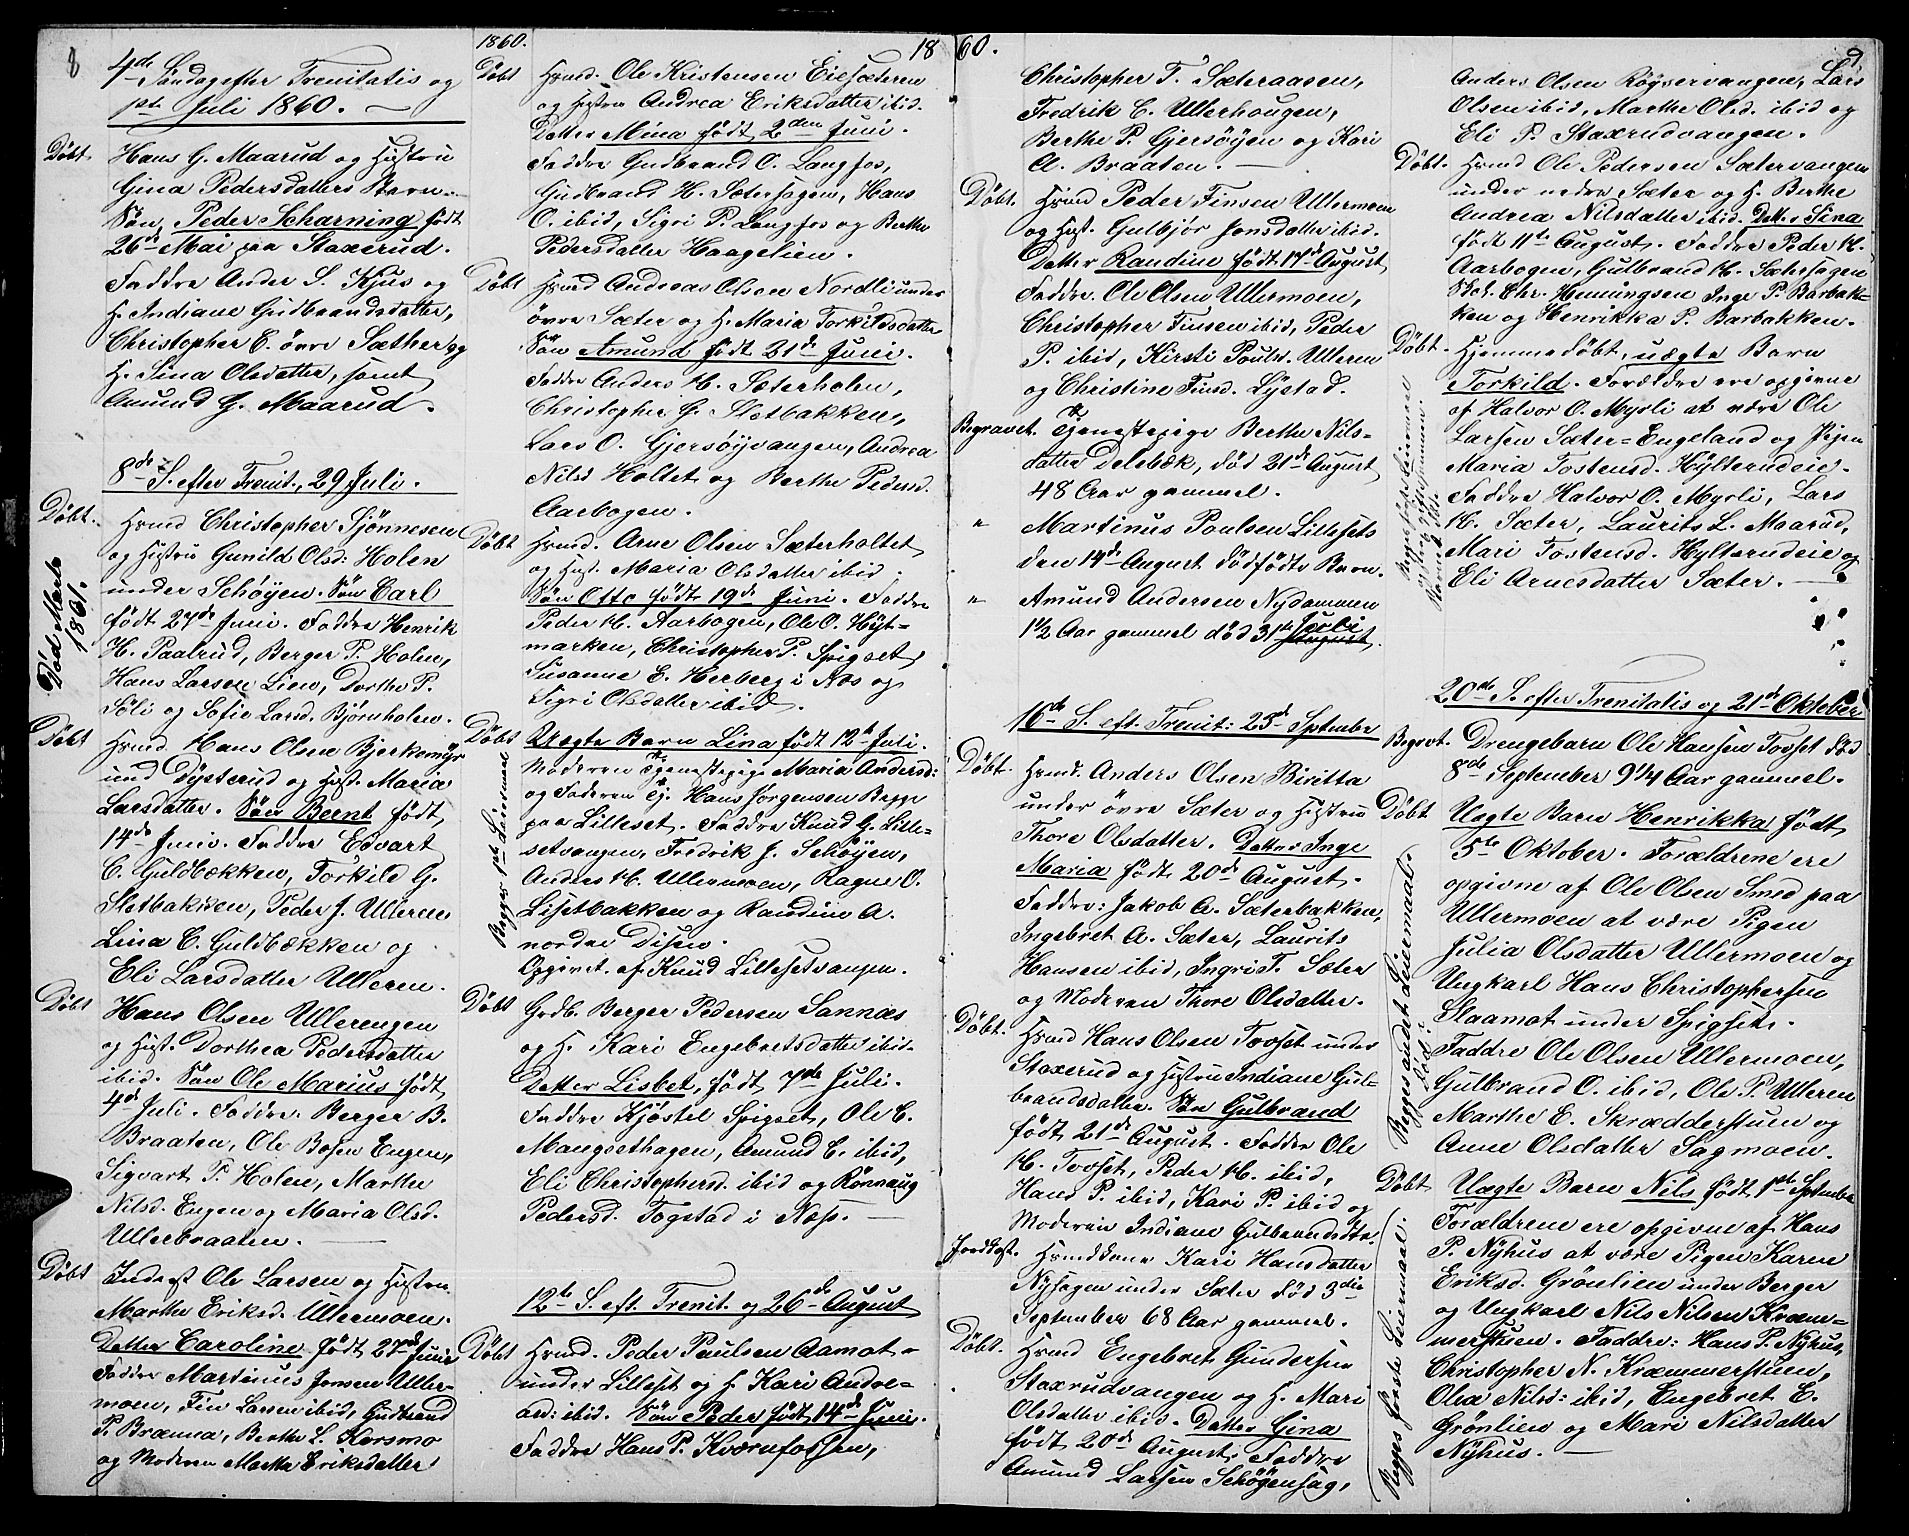 8
4de Søndag efter Trenitatis og
1ste Juli 1860.
Døbt. Hans G. Maarud og Hustru
Gina Pedersdatters Barn.
Søn, Peder Scharning født
26de Mai paa Staxerud.
Faddre Ander S. Kjus og
H. Indiane Gudbrandsdatter,
Christopher E. øvre Sæther og
H. Sina Olsdatter, samt
Amund G. Maarud.
8de S. efter Trenit., 29 Juli.
Døbt. Hmd Christopher Sjønnesen
og Hustru Gunild Olsd: Holen
under Schøyen. Søn Carl
født 27de Juni. Faddre Henrik
H. Paalrud, Berger P. Holen,
Hans Larsen Lien, Dorthe P.
Søli og Sofie Larsd. Bjørnholen.
Død Marts
1861.
Døbt Hmd. Hans Olsen Bjerkemyr
und Dysterud og Hust. Maria
Larsdatter. Søn Bernt født
14de Juni. Faddre Edvart
C. Guldbækken, Torkild G.
Sletbakken, Peder J. Ulleren
Lina C. Guldbækken og
Eli Larsdatter Ulleren.
Døbt Hans Olsen Ullerengen
og Hust. Dorthea Pedersdatter
ibid. Søn Ole Marius født
4de Juli. Faddre. Berger B.
Braaten, Ole Bosen Engen,
Sigvart P. Holen, Marthe
Nilsd. Engen og Maria Olsd.
Ullerbraaten.
Døbt Inderst Ole Larsen og Hustru
Marthe Eriksd. Ullermoen.
Datter Caroline født 27de Juni
Faddre Martinus Jonsen Uller-
moen, Fin Larsen ibid, Gudbrand
P. Brænna, Berthe L. Korsmo
og Moderen Marthe Eriksdatter
1860.
18
Døbt Hmd. Ole Kristensen Eiesæteren
og Hustru Andrea Eriksdatter ibid.
Datter Mina født 2den Juni.
Faddre Gudbrand O. Langfos,
Gudbrand H. Sæterhagen, Hans
O. ibid, Sigri P. Langfos og Berthe
Pedersdatter Haagelien.
Døbt Hmd Andreas Olsen Nordli under
øvre Sæter og H. Maria Torkildsdatter
Søn Amund født 21de Juni.
Faddre Anders H. Sæterholen,
Christopher G. Sletbakken,
Lars O. Gjersøyvangen, Andrea
Nilsd Holtet og Berthe Pedersd.
Aarbogen.
Døbt Hmd. Arne Olsen Sæterholtet
og Hust. Maria Olsdatter ibid.
Søn Otto født 19de Juni. Faddre
Peder H. Aarbogen, Ole O. Hyt-
marken, Christopher P. Spigset
Susanne E. Herberg i Næs og
Sigri Olsdatter ibid.
Døbt Uægte Barn Lina født 12te Juli.
Moderen Tjenestepige Maria Andersd:
og Faderen Tj. Hans Jørgensen Begge
paa Lilleset. Faddre Knud G. Lille-
setvangen, Fredrik J. Schøyen,
Anders H. Ullermoen, Ragne O.
Lisetbakken og Randine A.
nordre Disen.
Opgivet af Knud Lillesetvangen.
Begges 1ste Leiermaal
Døbt Grdb. Berger Pedersen Sannæs
og H. Kari Engebretsdatter ibid.
Datter Lisbet, født 7de Juli.
Faddre Kjøstel Spigset, Ole C.
Mangsethagen, Amund C. ibid,
Eli Christophersd. ibid og Rønnaug
Pedersd. Togstad i Næs.
12te S. eft. Trenit. og 26de August
Døbt Hmd. Peder Paulsen Aamot
under Lilleset og H. Kari Andre-
asd: ibid. Søn Peder født 14de Juni.
Faddre Hans P. Kværnfossen,
60.
Christopher T. Sæteraasen,
Fredrik C. Ullerhougen,
Berthe P. Gjersøyen og Kari
A. Braaten.
Døbt. Hmd Peder Finsen Ullermoen
og Hust. Gulbjør Jonsdatter ibid.
Datter Randine født 17de August
Faddre. Ole Olsen Ullermoen,
Christopher Finsen ibid, Peder
P. ibid, Kirsti Poulsd. Ulleren
og Christine Finsd. Lystad.
Begravet. Tjenestepige Berthe Nils-
datter Delebæk, død 21de August
48 Aar gammel.
" Martinus Poulsen Lillesets
den 14de August dødfødte Barn.
" Amund Andersen Nydammen
1 1/2 Aar gammel død 31te Juli August.
16de S. eft. Trenit: 23de September
Døbt. Hmd. Anders Olsen Biritta
under øvre Sæter og Hustru
Thore Olsdatter. Datter Inge
Maria født 20de August.
Faddre: Jakob A. Sæterbakken,
Ingebret A. Sæter, Laurits
Hansen ibid, Ingri T. Sæter
og Moderen Thore Olsdatter.
Døbt. Hmd Hans Olsen Tovset under
Staxerud og Hustru Indiane Gul-
brandsdatter. Søn Gulbrand
født 21de August. Faddre Ole
H. Tovset, Peder H. ibid,
Hans P. ibid, Kari P. ibid og
Moderen Indiane Gulbrandsdtr.
Jordkast. Hmdkone Kari Hansdatter
Nyhagen under Sæter død 3die
September 68 Aar gammel.
Døbt. Hmd Engebret Gundersen
Staxrudvangen og H. Mari
Olsdatter ibid. Datter Gina
født 20de August. Faddre
Amund Larsen Schøyenhag,
9.
Anders Olsen Røyservangen, Lars
Olsen ibid, Marthe Olsd. ibid og
Eli P. Staxrudvangen.
Døbt. Hmd Ole Pedersen Sætervangen
under nedre Sæter og H. Berthe
Andrea Nilsdatter ibid. Datter Sina
født 11te August. Faddre Peder H.
Aarbogen, Gulbrand H. Sæterhagen
Chr. Hemingsen Inge P. Barbak-
ken og Henrikka P. Barbakken.
Døbt. Hjemmedøbt, uægte Barn
Torkild. Forældre ere opgivne
af Halvor O. Myrli at være Ole
Larsen Sæter-Engeland og Pigen
Maria Tostensd. Hylterudeie.
Faddre Halvor O. Myrli, Lars
H. Sæter, Laurits L. Maarud,
Mari Tostensd. Hylterudeie og
Eli Arnesdatter Sæter.
Begges første Leiermaal
20de S. efter Trenitatis og 21de Oktober
Begravt. Drengebarn Ole Hansen Tovset død
8de September 9 1/4 Aar gammel.
Døbt Uægte Barn Henrikka født
5te Oktober. Forældrene ere
opgivne af Ole Olsen Smed paa
Ullermoen at være Pigen
Julia Olsdatter Ullermoen og
Ungkarl Hans Christophersen
Slaamot under Spigset.
Faddre Ole Olsen Ullermoen,
Gulbrand O. ibid, Ole P. Ulleren
Marthe E. Skrædderstuen og
Anne Olsdatter Sagmoen.
Begges andet Leiermaal.
Død.
Døbt Uægte Barn Nils født 1ste September
Forældrene ere opgivne af Hans
P. Nyhus at være Pigen Karen
Eriksd. Grønlien under Berger
og Ungkarl Nils Nilsen Kræm-
merstuen. Faddre: Hans P. Nyhus,
Christopher N. Kræmmerstuen,
Olea Nilsd: ibid, Engebret E.
Grønlien og Mari Nilsdatter
Nyhus.
Begges første Leiermaal.